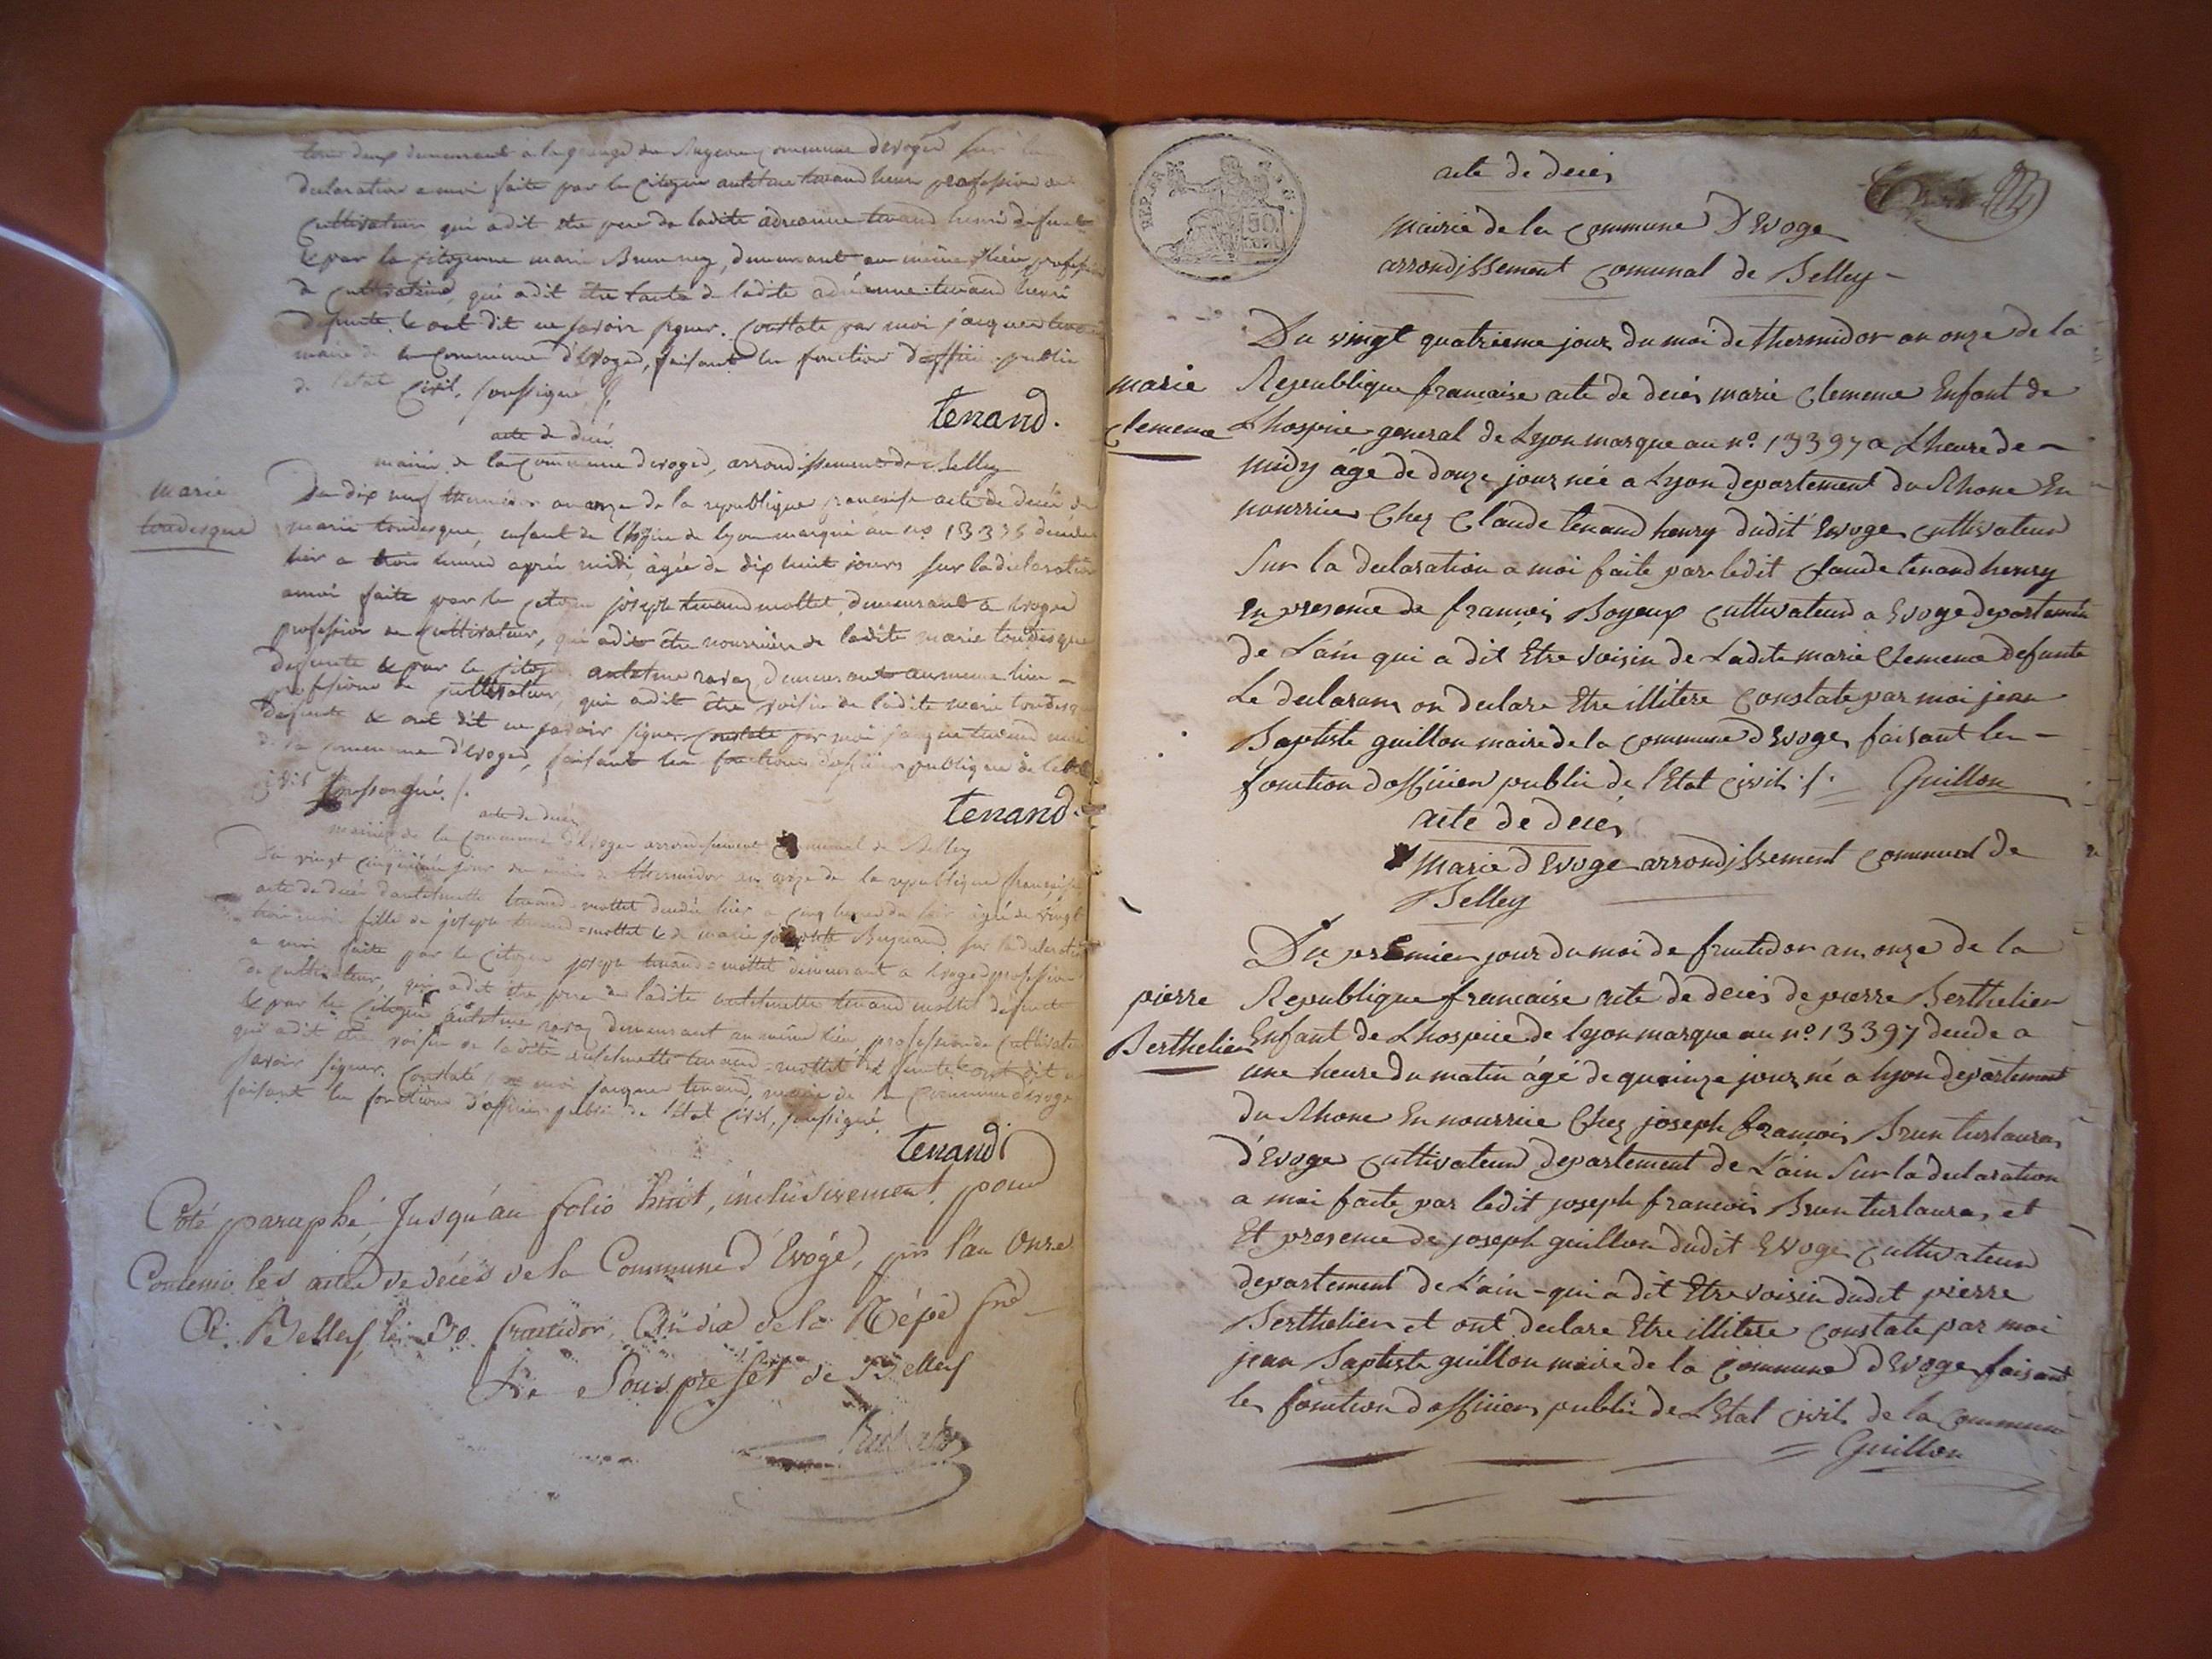 tous deux demeurant à la grange du commune d'évoges sur la
declaration a moi faite par le citoyen antelme tenand henri profession de
cultivateur qui a dit etre pere de ladite adrianne tenand henri defunte
& par la citoyenne marie demeurant au même lieu profession
de cultivatrice, qui a dit être tante de ladite adrianne tenand henri
defunte. & ont dit ne savoir signer. constaté par moi jacque tenand
maire de la commune d'évoges, faisant les fonctions d'officier public
de l'état civil, soussigné ./.
tenand.
acte de décés
mairie de la commune d'evoges, arrondissement de Belley
marie
toudesque
Du dix neuf thermidor an onze de la republique francaise acte de décés de
marie toudesque, enfant de l'hospice de lyon marqué au no 13335 décédée
hier a trois heures aprés midi, âgée de dix huit jours sur la declaration
a moi faite par le citoyen joseph tenand mollet, demeurant a evoges
profession de cultivateur, qui a dit être nourricier de ladite marie toudesque
defunte & par le citoyen antelme ravaz demeurant au meme lieu –
profession de cultivateur, qui a dit être voisin de ladite marie toudesque
defunte & ont dit ne savoir signer. constaté par moi jacque tenand maire
de la commune d'évoges, faisant les fonctions d'officier publique de l'état
civil soussigné ./.
tenand.
acte de décés
mairie de la commune d'Evoges arrondissement communal de Belley
Du vingt cinquième jour du mois de thermidor an onze de la republique française
acte de décés d'antelmette tenand-mollet décédée hier a cinq heures du soir âgée de vingt
trois mois fille de joseph tenand=mollet & de marie sur la declaration
a moi faite par le citoyen joseph tenand=mollet demeurant a evoges profession
de cultivateur, qui a dit être pere de ladite antelmette tenand mollet defunte
& par le citoyen antelme ravaz demeurant au même lieu profession de cultivateur
qui a dit être voisin de ladite antelmette tenand=mollet defunte & ont dit ne
savoir signer. constaté par moi jacque tenand, maire de la commune d'evoges
faisant les fonctions d'officier public de l'état civil, soussigné.
tenand
Coté paraphé, Jusqu'au folio huit, inclusivement, pour
Contenir les actes de décès de la Commune d'Evoge, pr l'an Onze
A. Belley, le 30. fructidor, An dix de la Répe. frse.
Le Sous préfet de Belley
acte de deces
mairie de la commune D'Evoge
arrondissement comunal de Belley –
marie
clemence
Du vingt quatrieme jour du moi de thermidor an onze de la
Republique francaise acte de deces marie clemence Enfant de
Lhospice general de Lyon marque au no. 13397 a Lheure de –
midy âge de douze jour née a Lyon departement du Rhone En
nourrice Chez Claude tenand henry dudit Evoge cultivateur
Sur la declaration a moi faite par ledit claude tenand henry
En presence de francois Boyeux cultivateur a Evoge departement
de Lain qui a dit Etre voisin de Ladite marie clemence defunte
Le declarans on declare Etre illitere constate par moi jean
Baptiste guillon maire de la commune dEvoge faisant les –
fonction dofficier public de l'Etat civil ./. = Guillon
acte de deces
Marie dEvoge arrondissement communal de
Belley
pierre
Berthelier
Du premier jour du moi de fructidor an onze de la
Republique francaise acte de deces de pierre Berthelier
Enfant de Lhospice de lyon marque au no. 13397 decede a
une heure du matin âgé de quinze jour né a lyon departement
du Rhone En nourrice Chez joseph francois Brun turlaura,
d'Evoge cultivateur departement de Lain Sur la declaration
a moi faite par ledit joseph francois Brun turlaura, et
Et presence de joseph guillon dudit Evoge cultivateur
departement de L'ain – qui a dit Etre voisin dudit pierre
Berthelier et ont declare Etre illitere constate par moi
jean Baptiste guillon maire de la commune dEvoge faisant
les fonction dofficier public de LEtat civil de la commune
= Guillon